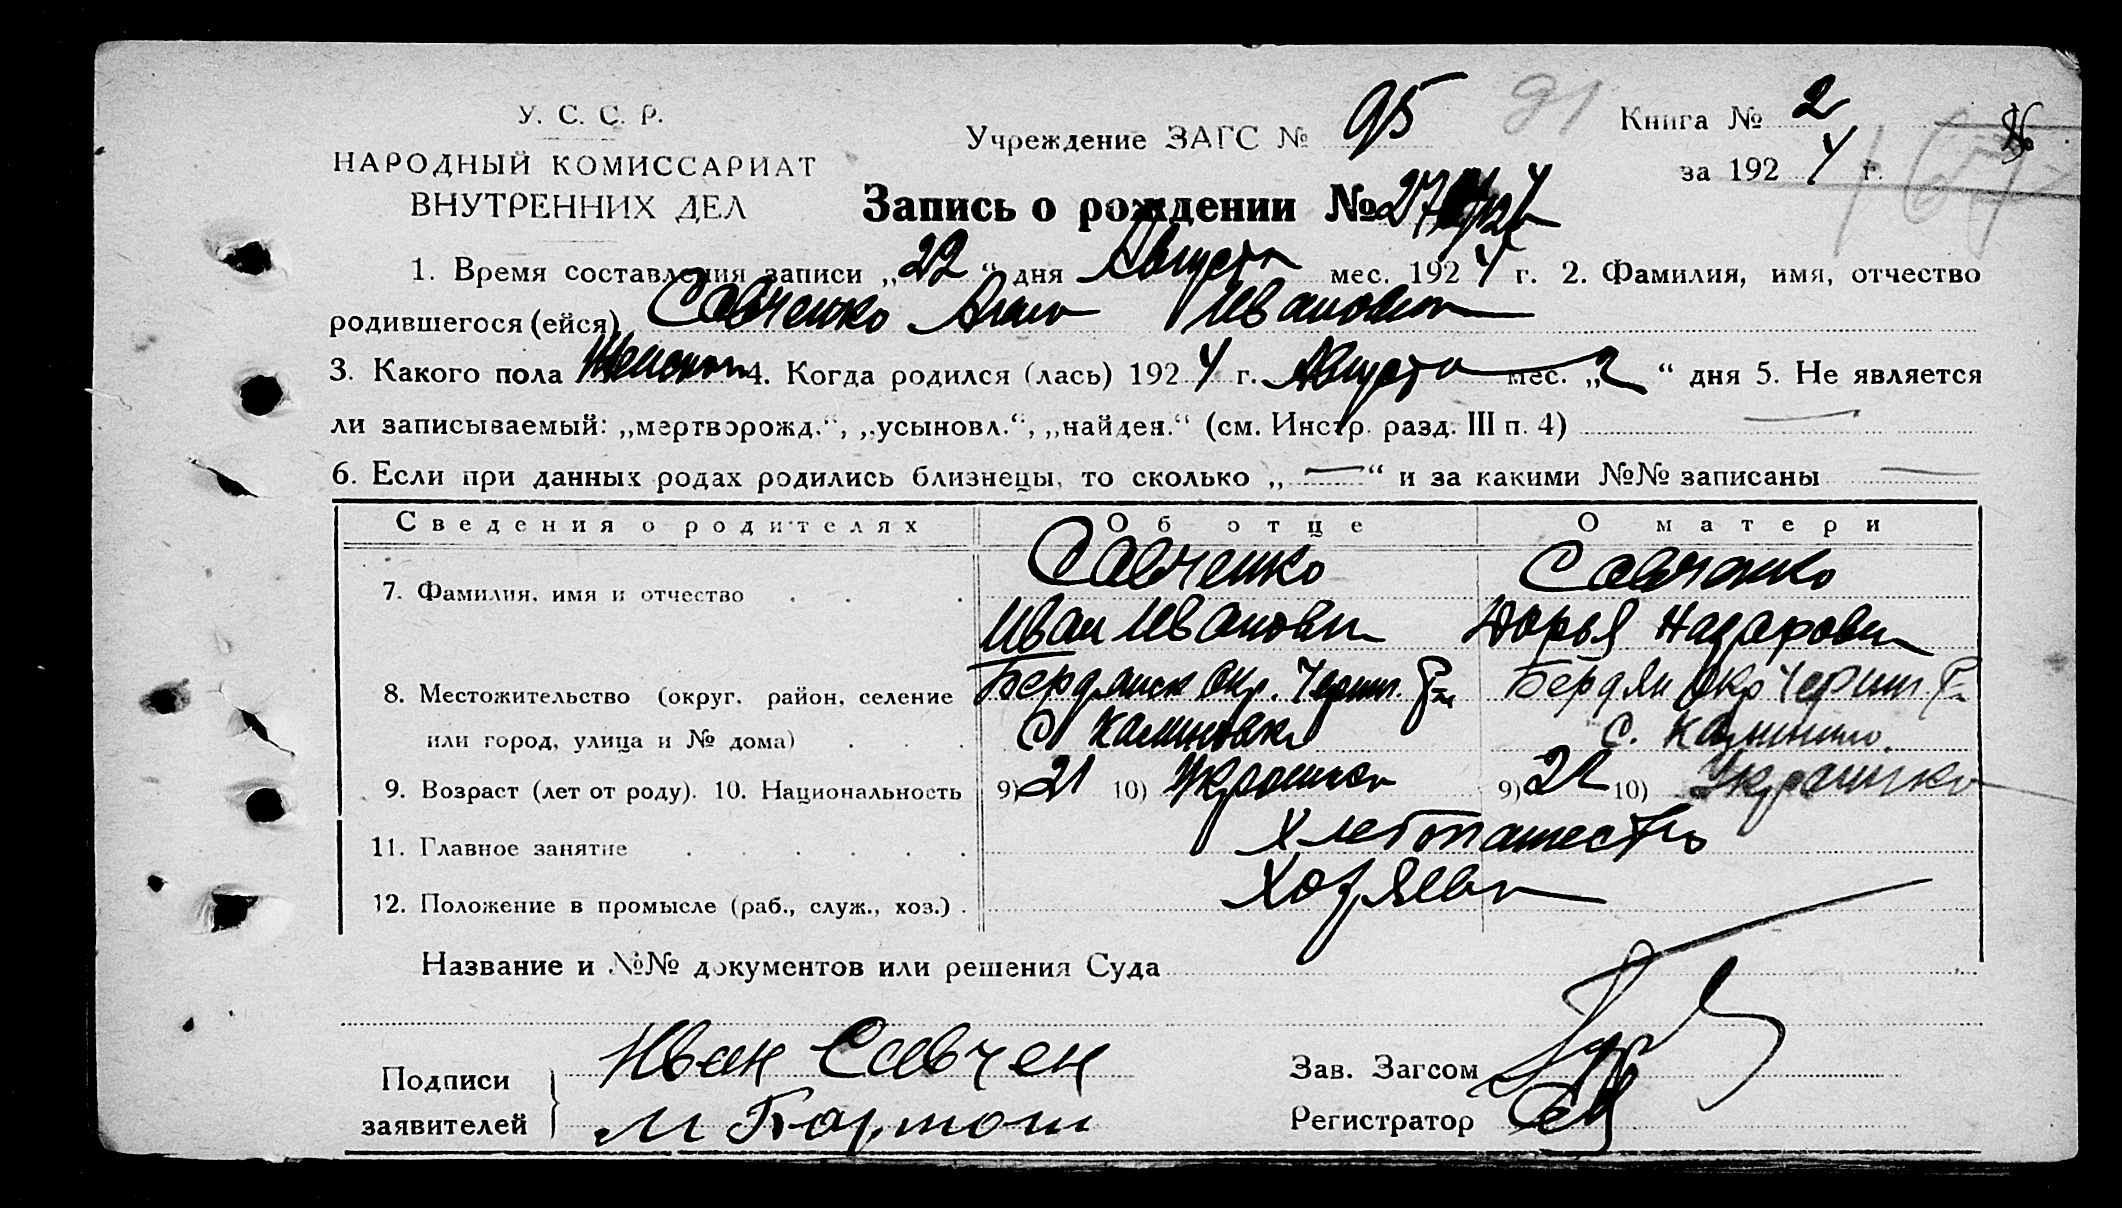 У. С. С. Р.
НАРОДНЫЙ КОМИССАРИАТ
ВНУТРЕННИХ ДЕЛ
Учреждение ЗАГС № 95 91
Книга № 2
за 192 4 г.
Запись о рождении № 27
1. Время составления записи „22“ дня Августа мес. 192 4 г. 2. Фамилия, имя, отчество
родившегося (ейся) Савченко Иванович
3. Какого пола 4. Когда родился (лась) 192 4 г. Августа мес. „2“ дня 5. Не является
ли записываемый: „мертворожд.“, „усыновл.“, „найден.“ (см. Инстр. разд. III п. 4) —
6. Если при данных родах родились близнецы, то сколько „—“ и за какими №№ записаны —
Сведения о родителях Об отце О матери
7. Фамилия, имя и отчество Савченко Савченко
Иван Иванович Дарья Назаровн
8. Местожительство (округ, район, селение Бердянск Окр. Черниг. Р-н Бердян Окр Черниг. Р-н
или город, улица и № дома) с Калиновка с.
9. Возраст (лет от роду). 10. Национальность 9) 21 10) 9) 22 10)
11. Главное занятие Хлебопашество
12. Положение в промысле (раб., служ., хоз.) Хозяева
Название и №№ документов или решения Суда
Подписи
заявителей
Иван Савчен
М
Зав. Загсом
Регистратор